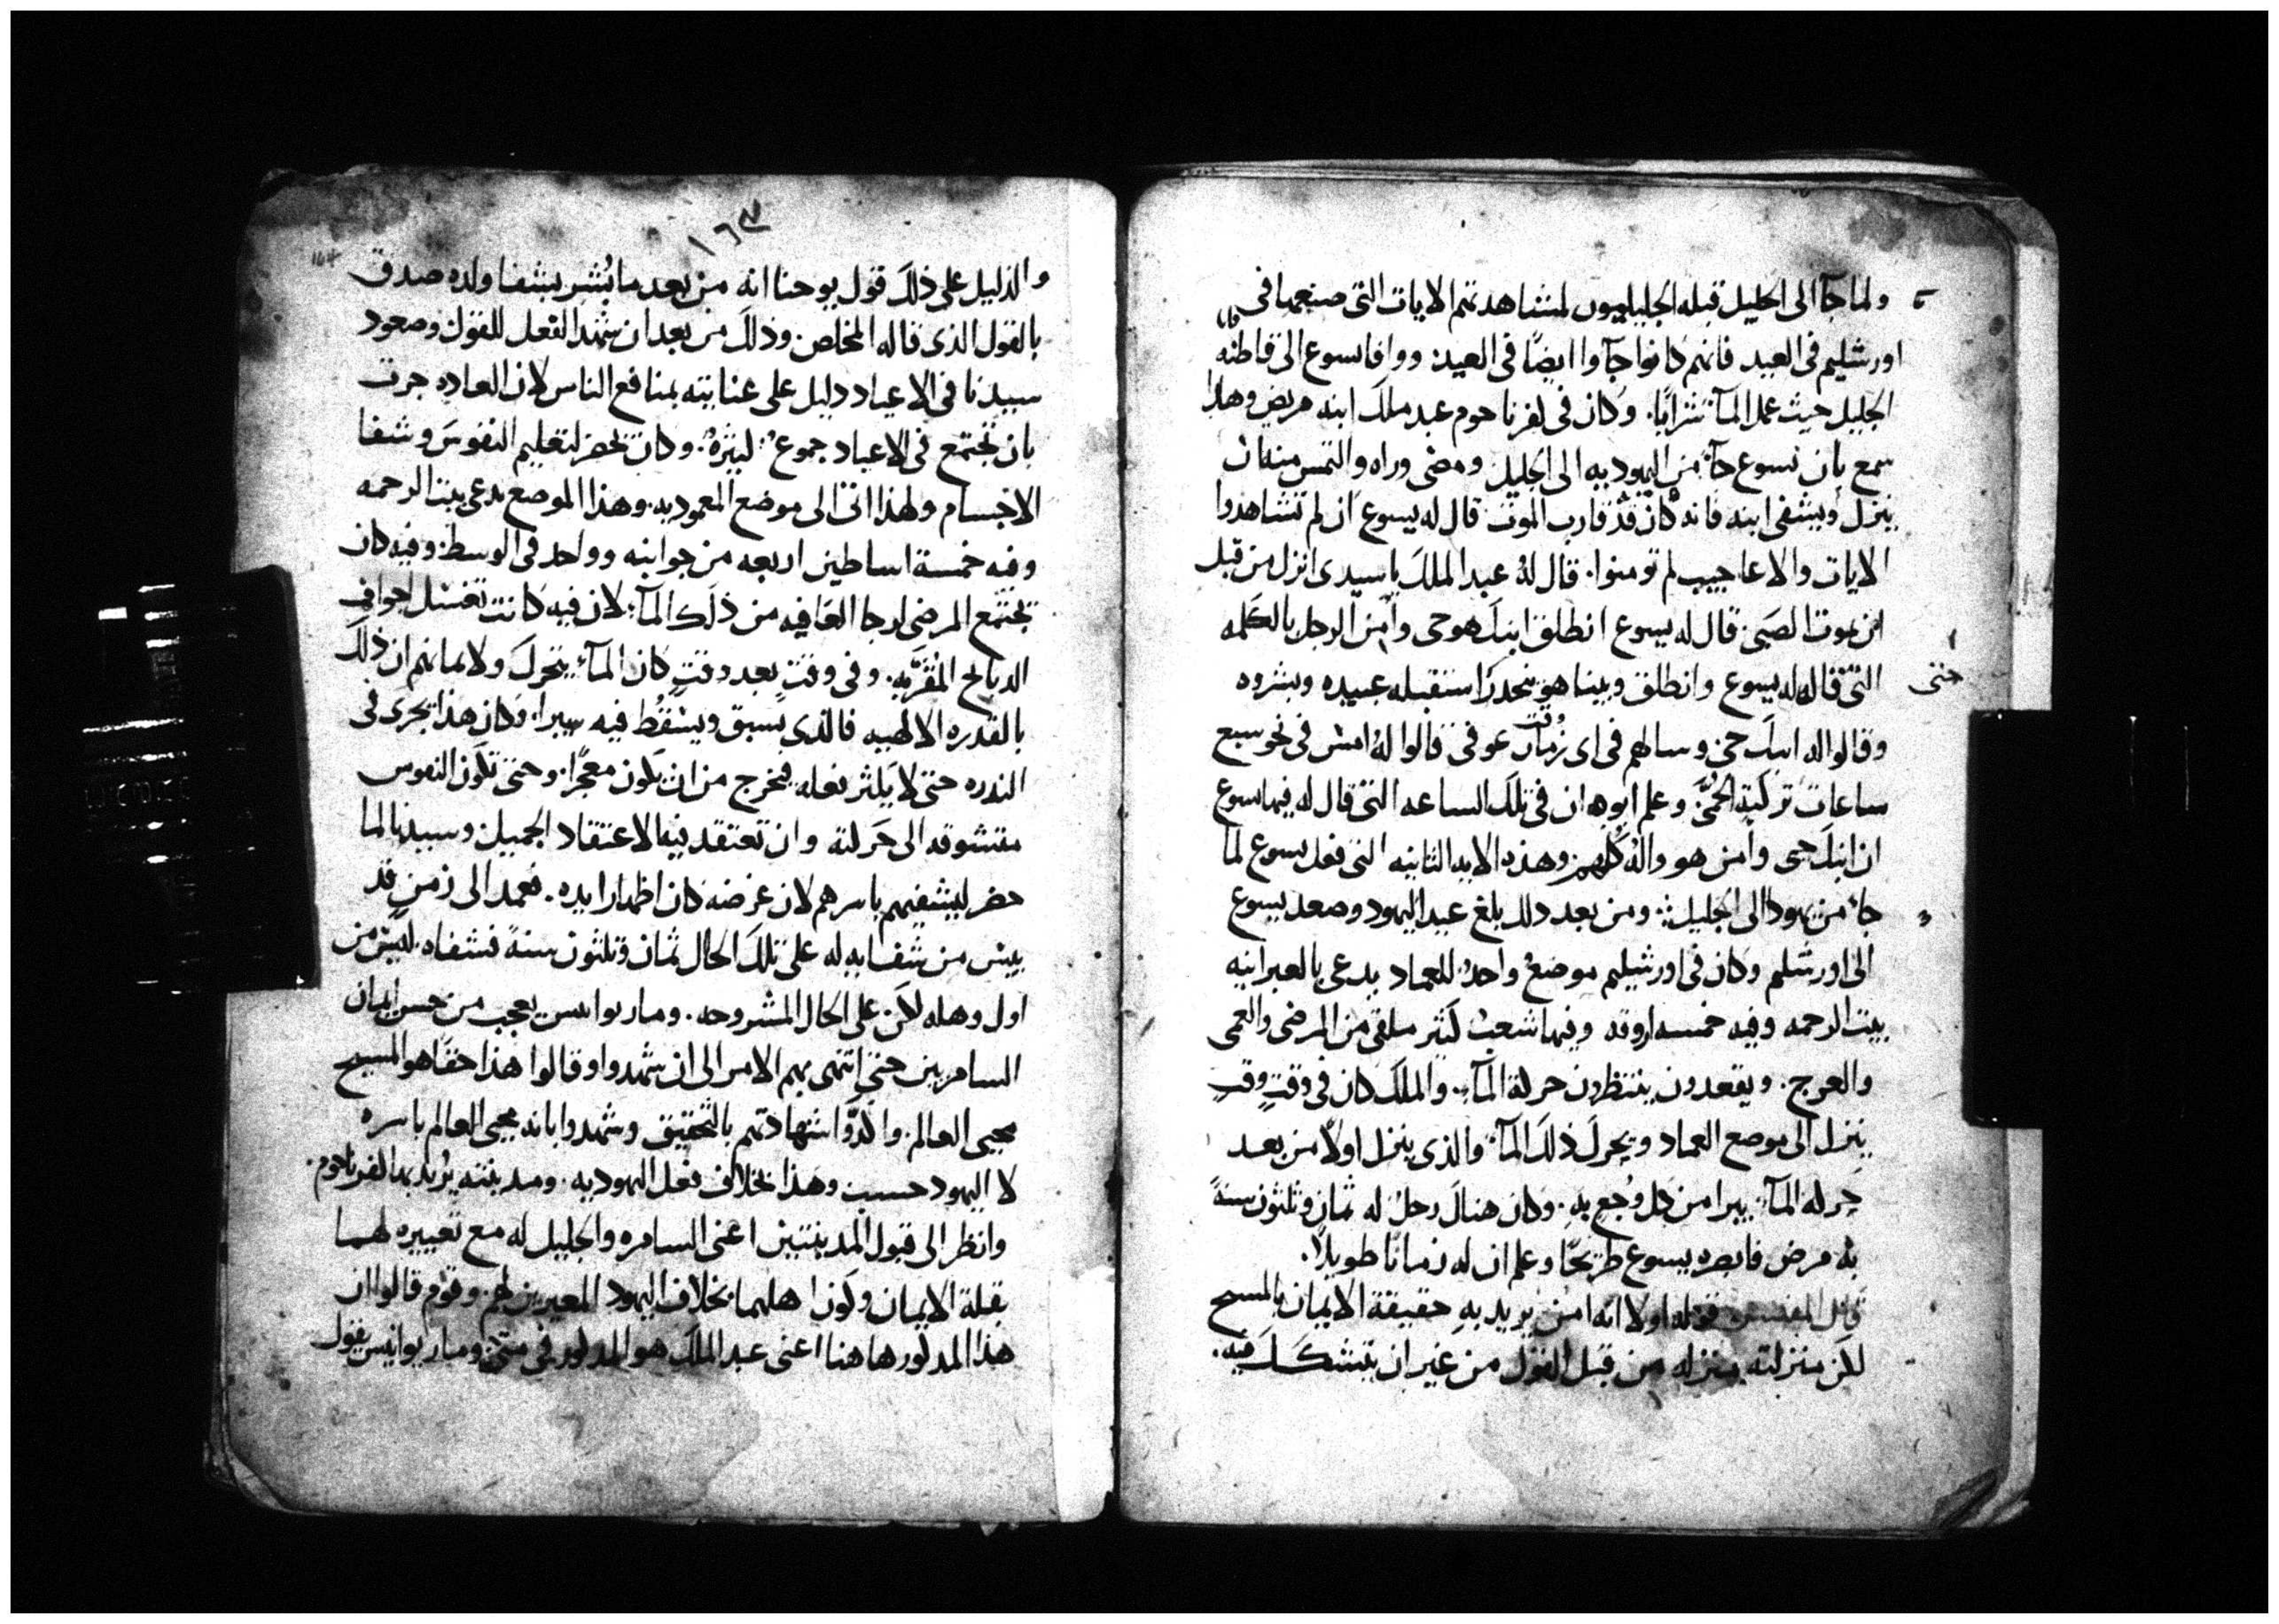 ولما جآ الى الجليل قبله الجليليون لمشاهدتهم الايات التى صنعها فى
اورشليم فى العيد فانهم كانوا جآوا ايضًا فى العيد ووافا يسوع الى قاطنه
الجليل حيث عمل المآ شرابًا وكان فى كفرنا حوم عبد ملك ابنه مريض وهذا
سمع بان يسوع جآ من اليهوديه الى الجليل ومضى وراه والتمس منه ان
ينزل ويشفى ابنه فانه كان قد قارب الموت قال له يسوع ان لم تشاهدوا
الايات والاعاجيب لم تومنوا قال له عبد الملك ياسيدى انزل من قبل
ان يموت الصبى قال له يسوع انطلق ابنك هو حى وآمن الرجل بالكلمه
التى قالها له يسوع وانطلق وبينا هو منحدرًا استقبله عبيده وبشروه
حتى
وقالوا له ابنك حى وسالهم فى اى زمان عوفى قالوا له امس فى نحو سبع
ساعات تركته الحمى وعلم ابوه ان فى تلك الساعه التى قال له فيها يسوع
ان ابنك حى وآمن هو واله كلهم وهذه الايه الثانيه التى فعل يسوع لما
جا من يهودا الى الجليل ومن بعد ذلك بلغ عيد اليهود وصعد يسوع
الى اورشلم وكان فى اورشليم موضع واحد للعماد يدعى بالعبرانيه
بيت الرحمه وفيه خمسه اروقه وفيها شعب كثير ملقى من المرضى والعمى
والعرج ويقعدون ينتظرون حركة المآ والملك كان فى وقتٍ وقتٍ
ينزل الى موضع العماد ويحرك ذلك المآ والذى ينزل اولًا من بعد
حركة المآ يبرا من كل وجع به وكان هناك رجل له ثمان وثلثون سنةً
به مرض فابصره يسوع طريحًا وعلم ان له زمانًا طويلًا
قال المفسر قوله اولا انه امن يريد به حقيقة الايمان بالمسيح
لكن منزلته منزله من قبل القول من غير ان يتشكك فيه
١٦٤
164
والدليل على ذلك قول يوحنا انه من بعد ما بُشر بشفا ولده صدق
بالقول الذى قاله المخلص وذلك من بعد ان شهد الفعل للقول وصعود
سيدنا فى الاعياد دليل على عنايته بمنافع الناس لان العاده جرت
بان تجتمع فى الاعياد جموع كثيرة وكان يحضر لتعليم النفوس وشفا
الاجسام ولهذا اتى الى موضع المعموديه وهذا الموضع يدعى بيت الرحمه
وفيه خمسة اساطين اربعه من جوانبه وواحد فى الوسط وفيه كان
تجتمع المرضى لرجا العافيه من ذلك المآ لان فيه كانت تغسل اجواف
الدبايح المقربه وفى وقتٍ بعد وقتٍ كان المآ يتحرك ولايمانهم ان ذلك
بالقدره الالهيه فالذى يسبق ويسقط فيه يبرا وكان هذا يجرى فى
الندره حتى لا يكثر فعله فيخرج من ان يكون معجزًا وحتى تكون النفوس
متشوقه الى حركته وان تعتقد فيه الاعتقاد الجميل وسيدنا لما
حضر ليشفيهم باسرهم لان غرضه كان اظهار ايده فعمد الى زمن قد
يئس من شفايه له على تلك الحال ثمان وثلثون سنةً فشفاه ليس من
اول وهله لكن على الحال المشروحه ومار يوانيس يعجب من حسن ايمان
السامريين حتى انتهى بهم الامر الى ان شهدوا وقالوا هذا حقًا هو المسيح
محيى العالم واكدوا شهادتهم بالتحقيق وشهدوا بانه محيى العالم باسره
لا اليهود حسب وهذا بخلاف فعل اليهوديه ومدينته يُريد بها كفرناحوم
وانظر الى قبول المدينتين اعنى السامره والجليل له مع تعييره لهما
بقلة الايمان وكون اهلهما بخلاف اليهود المعيرين لهم وقوم قالوا ان
هذا المذكور هاهنا اعنى عبد الملك هو المذكور فى متى ومار يوانيس يقول